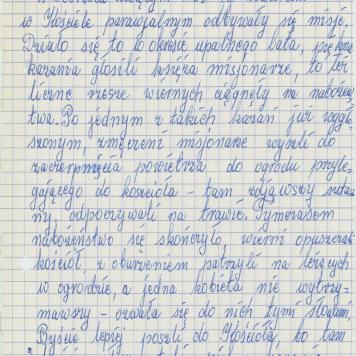 w Kościele parawialnym odbywały się misje.
Działo się to w okresie upalnego lata, piękne
kazania głosili księża misjonarze, to też
liczne rzesze wiernych ciągnęły na nabożeń
stwa. Po jednym z takich kazań już wygło-
szonym, zmęczeni misjonarze wyszli do
zaczerpnięcia powietrza do ogrodu przyle-
gającego do kościoła – tam zdjąwszy sutan-
ny, odpoczywali na trawie. Tymczasem
nabożeństwo się skończyło, wierni opuszczali
kościół, z oburzeniem patrzyli na leżących
w ogrodzie, a jedna kobieta nie wytrzy-
mawszy – ozwała się do nich tym słowami,
Byście lepiej poszli do Kościoła, bo tam